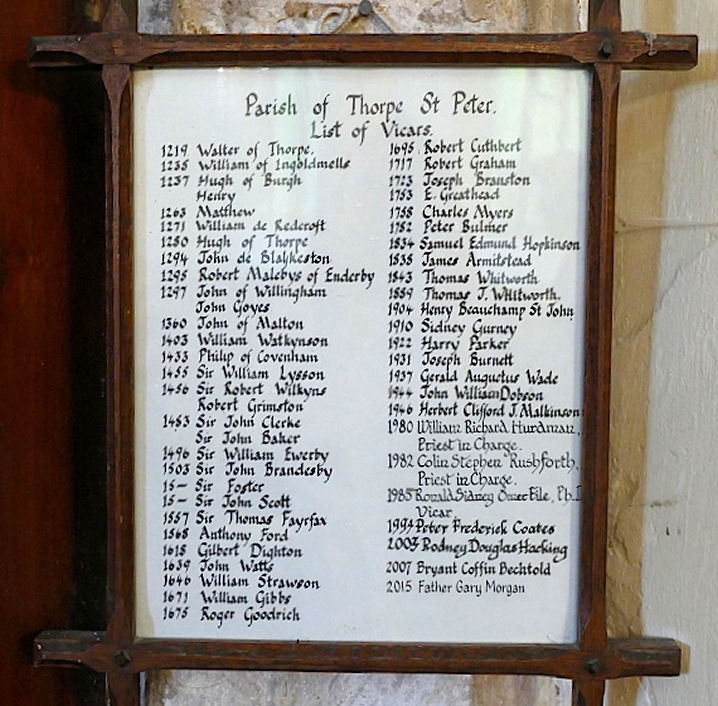 Parish of Thorpe St Peter.
List of Vicars.
1219 Walter of Thorpe.
1235 William of Ingoldmells
1237 Hugh of Burgh
Henry
1263 Matthew
1271 William de Redcroft
1280 Hugh of Thorpe
1294 John de Blaykeston
1295 Robert Malebys of Enderby
1297 John of Willingham
John Goyes
1360 John of Malton
1403 William Watkynson
1433 Philip of Covenham
1455 Sir William Lysson
1456 Sir Robert Wilkyns
Robert Grimston
1483 Sir John Clerke
Sir John Baker
1496 Sir William Ewerby
1503 Sir John Brandesby
15— Sir Foster
15— Sir John Scott
1557 Sir Thomas Fayrfax
1568 Anthony Ford
1618 Gilbert Dighton
1639 John Watts
1646 William Strawson
1671 William Gibbs
1675 Roger Goodrich
1695 Robert Cuthbert
1717 Robert Graham
1723 Joseph Branston
1753 E. Greathead
1758 Charles Myers
1782 Peter Bulmer
1834 Samuel Edmund Hopkinson
1838 James Armitstead
1843 Thomas Whitworth
1889 Thomas J. Whitworth.
1904 Henry Beauchamp St John
1910 Sidney Gurney
1922 Harry Parker
1931 Joseph Burnett
1937 Gerald Augustus Wade
1944 John William Dobson
1946 Herbert Clifford J. Malkinson
1980 William Richard Hurdman,
Priest in Charge.
1982 Colin Stephen Rushforth,
Priest in Charge.
1985 Ronald Sidney Omer File, Ph.D
Vicar.
1994 Peter Frederick Coates
2003 Rodney Douglas Hacking
2007 Bryant Coffin Bechtold
2015 Father Gary Morgan